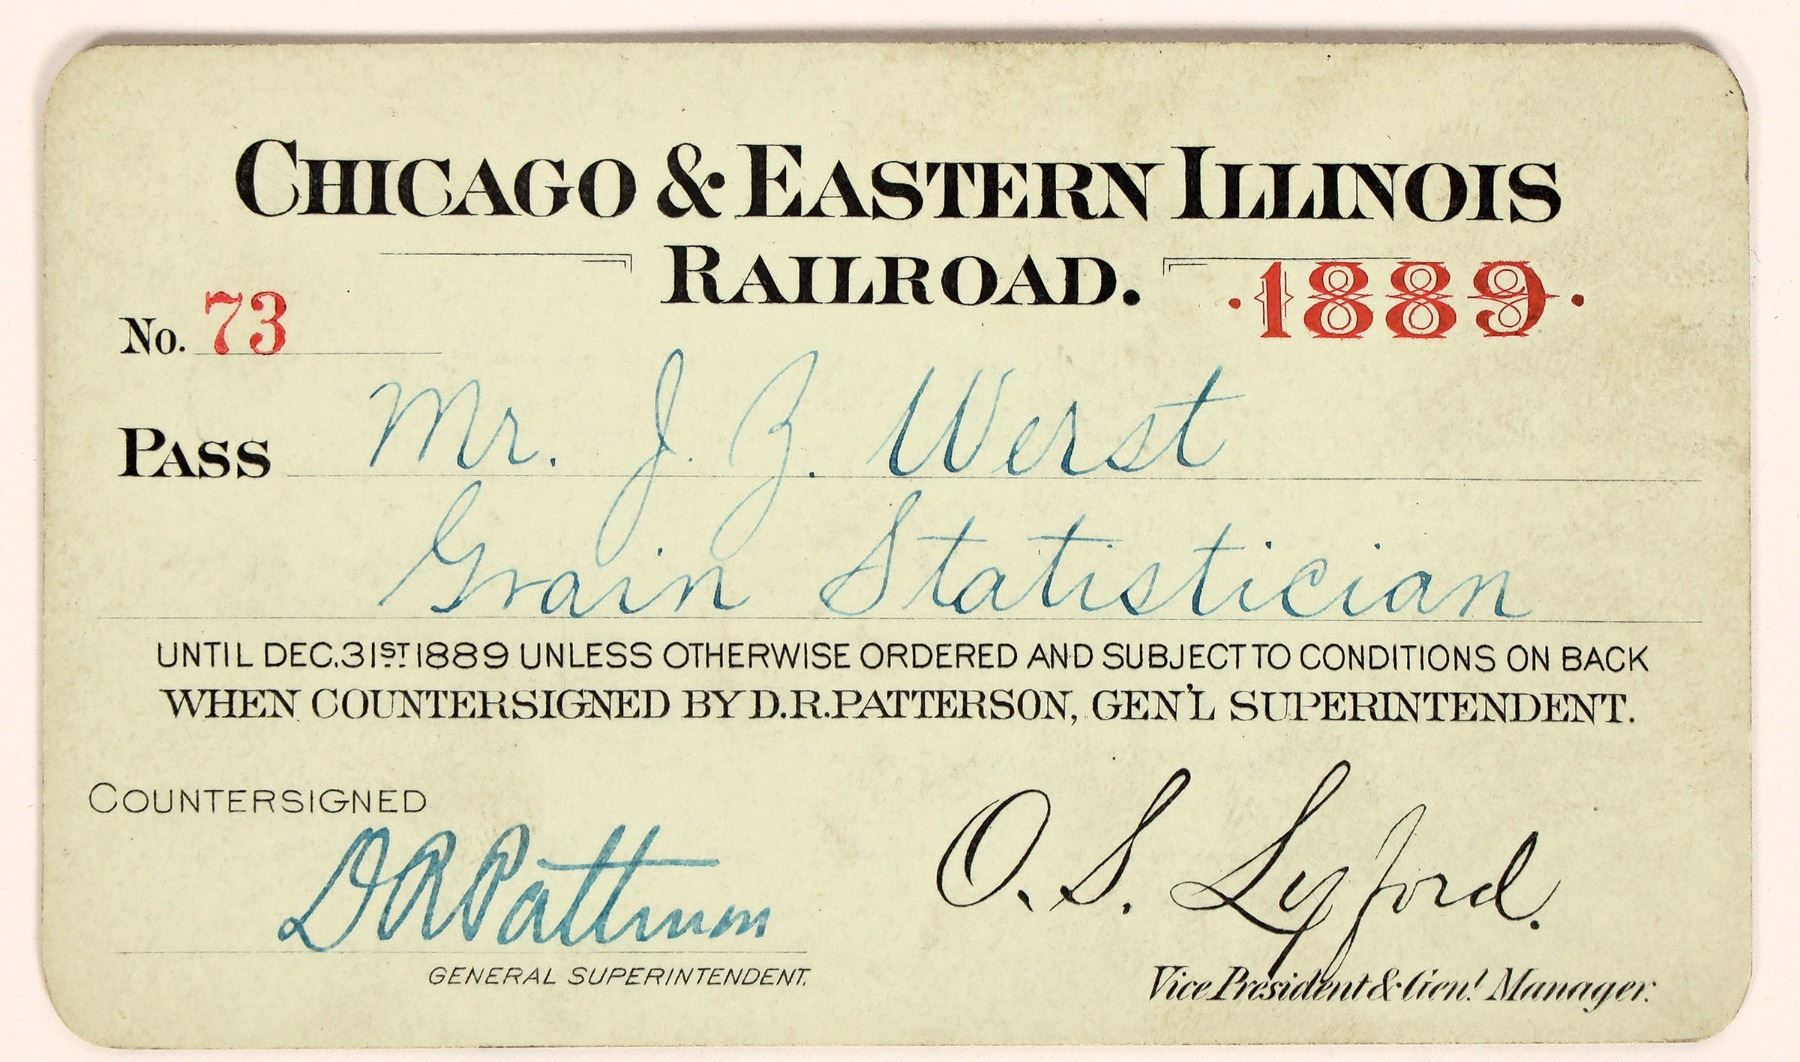 CHICAGO & EASTERN ILLINOIS
RAILROAD.
·1889·
No. 73
PASS Mr. J. Z. Werst
Grain Statistician
UNTIL DEC. 31ST 1889 UNLESS OTHERWISE ORDERED AND SUBJECT TO CONDITIONS ON BACK
WHEN COUNTERSIGNED BY D.R. PATTERSON, GEN'L SUPERINTENDENT.
COUNTERSIGNED
D R Patterson
GENERAL SUPERINTENDENT.
O. S. Lyford.
Vice President & Genl. Manager.